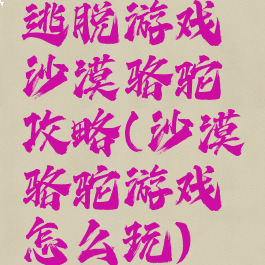 逃脱游戏
沙漠骆驼
攻略(沙漠
骆驼游戏
怎么玩)